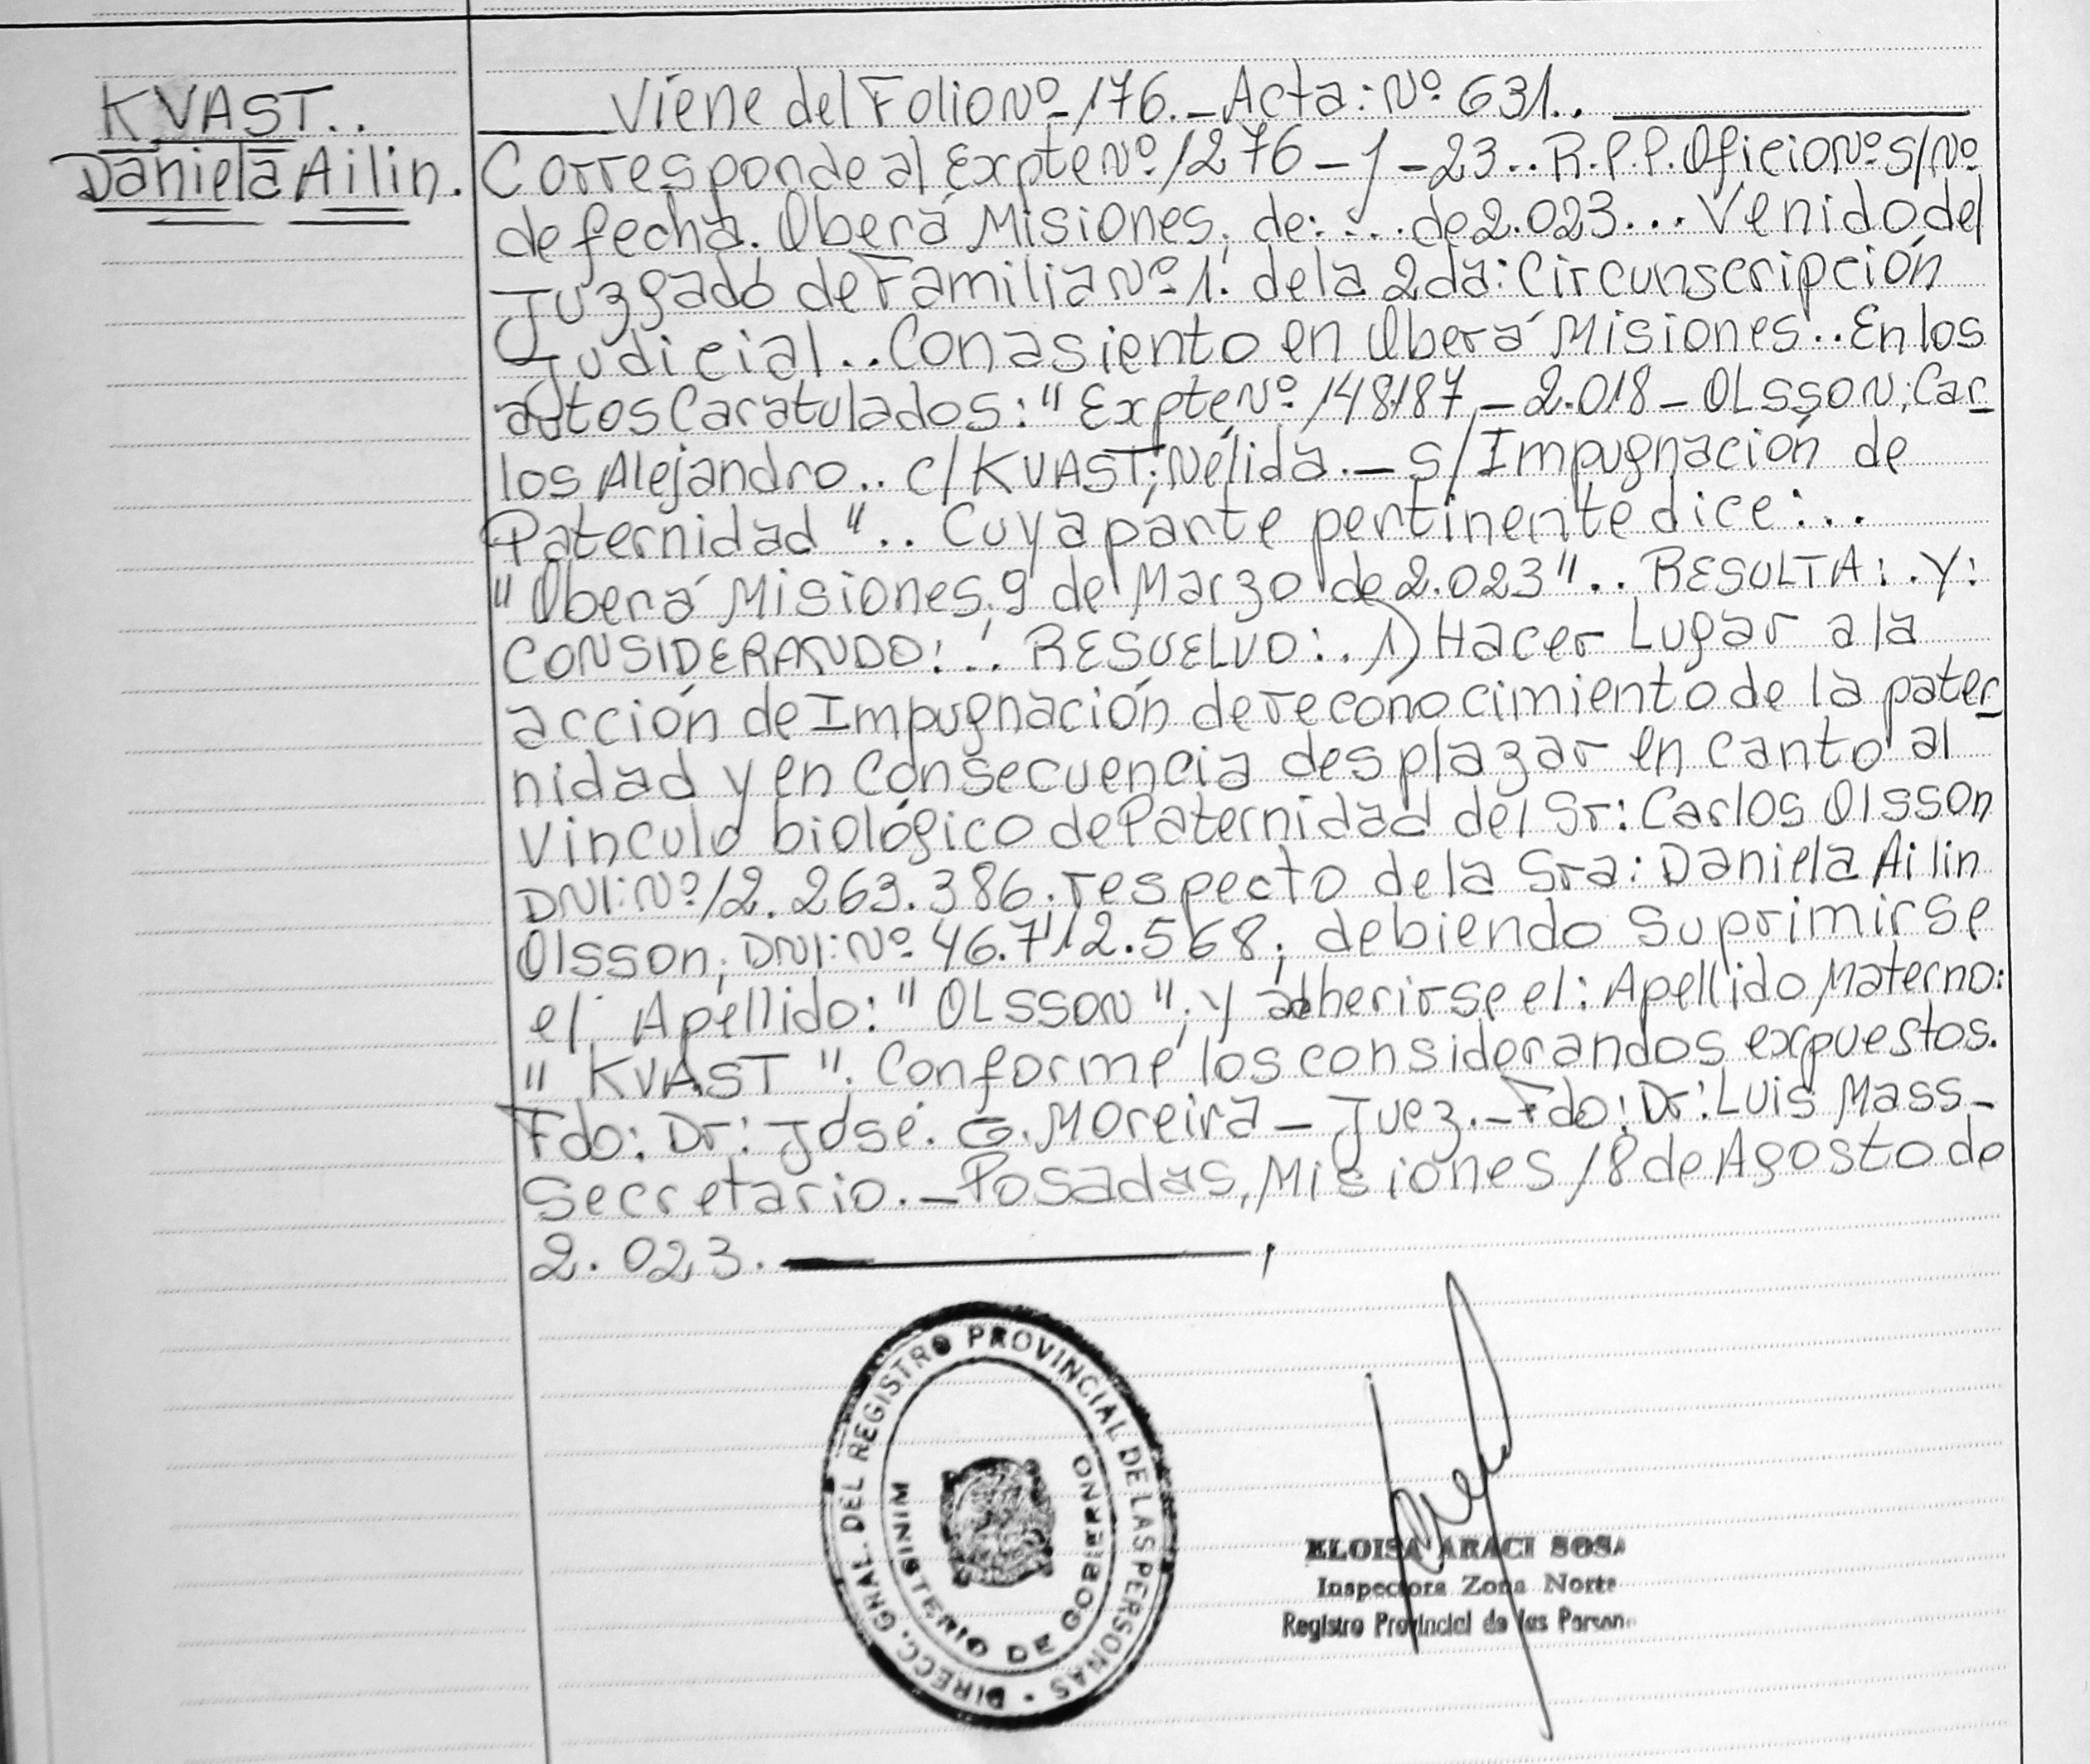 KVAST..
Daniela Ailin.
Viene del Folio Nº 176.- Acta: Nº 631..
Corresponde al Expte Nº 1276-J-23.. R.P.P. Oficio Nº S/Nº
de fecha. Oberá Misiones, de:... de 2.023... Venido del
Juzgado de Familia Nº 1. de la 2da: Circunscripción
Judicial.. Con asiento en Oberá Misiones.. En los
autos Caratulados: "Expte Nº 148187-2.018- OLSSON, Car-
los Alejandro.. c/ KVAST, Nélida.- S/ Impugnación de
Paternidad ".. Cuya parte pertinente dice:..
"Oberá Misiones, 9 de Marzo de 2.023".. RESULTA:. Y:
CONSIDERANDO:.. RESUELVO:. 1) Hacer Lugar a la
acción de Impugnación de reconocimiento de la pater-
nidad y en consecuencia desplazar en canto al
Vinculo biológico de Paternidad del Sr: Carlos Olsson
DNI: Nº 12.263.386. respecto de la Sra: Daniela Ailin
Olsson, DNI: Nº 46.712.568, debiendo suprimirse
el Apellido: "OLSSON", y adherirse el: Apellido Materno:
"KVAST". Conforme los considerandos expuestos.
Fdo: Dr: José. G. Moreira - Juez.- Fdo: Dr: Luis Mass-
Secretario.- Posadas, Misiones 18 de Agosto de
2.023.
DIRECC. GRAL. DEL REGISTRO PROVINCIAL DE LAS PERSONAS
MINISTERIO DE GOBIERNO
ELOISA ARACI SOSA
Inspectora Zona Norte
Registro Provincial de las Person